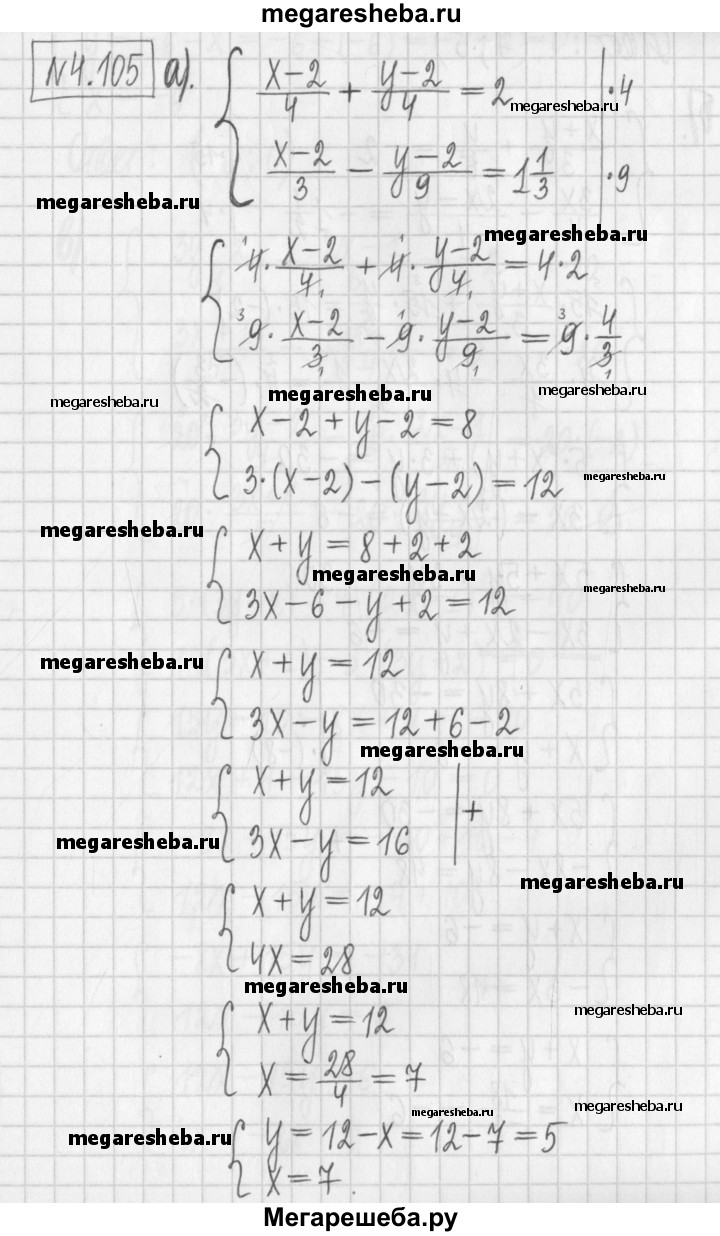 megaresheba.ru
№4.105 а). { (x-2)/4 + (y-2)/4 = 2 | ·4
megaresheba.ru
(x-2)/3 - (y-2)/9 = 1 1/3 | ·9
megaresheba.ru
megaresheba.ru
{ 4· (x-2)/4 + 4· (y-2)/4 = 4·2
9· (x-2)/3 - 9· (y-2)/9 = 9· 4/3
megaresheba.ru megaresheba.ru megaresheba.ru
{ x-2+y-2=8
3·(x-2)-(y-2)=12 megaresheba.ru
megaresheba.ru
{ x+y=8+2+2
megaresheba.ru
3x-6-y+2=12 megaresheba.ru
megaresheba.ru { x+y=12
3x-y=12+6-2
megaresheba.ru
{ x+y=12 | +
megaresheba.ru 3x-y=16
megaresheba.ru
{ x+y=12
4x=28
megaresheba.ru
{ x+y=12 megaresheba.ru
x= 28/4 =7
megaresheba.ru megaresheba.ru
megaresheba.ru { y=12-x=12-7=5
x=7.
Мегарешеба.ру